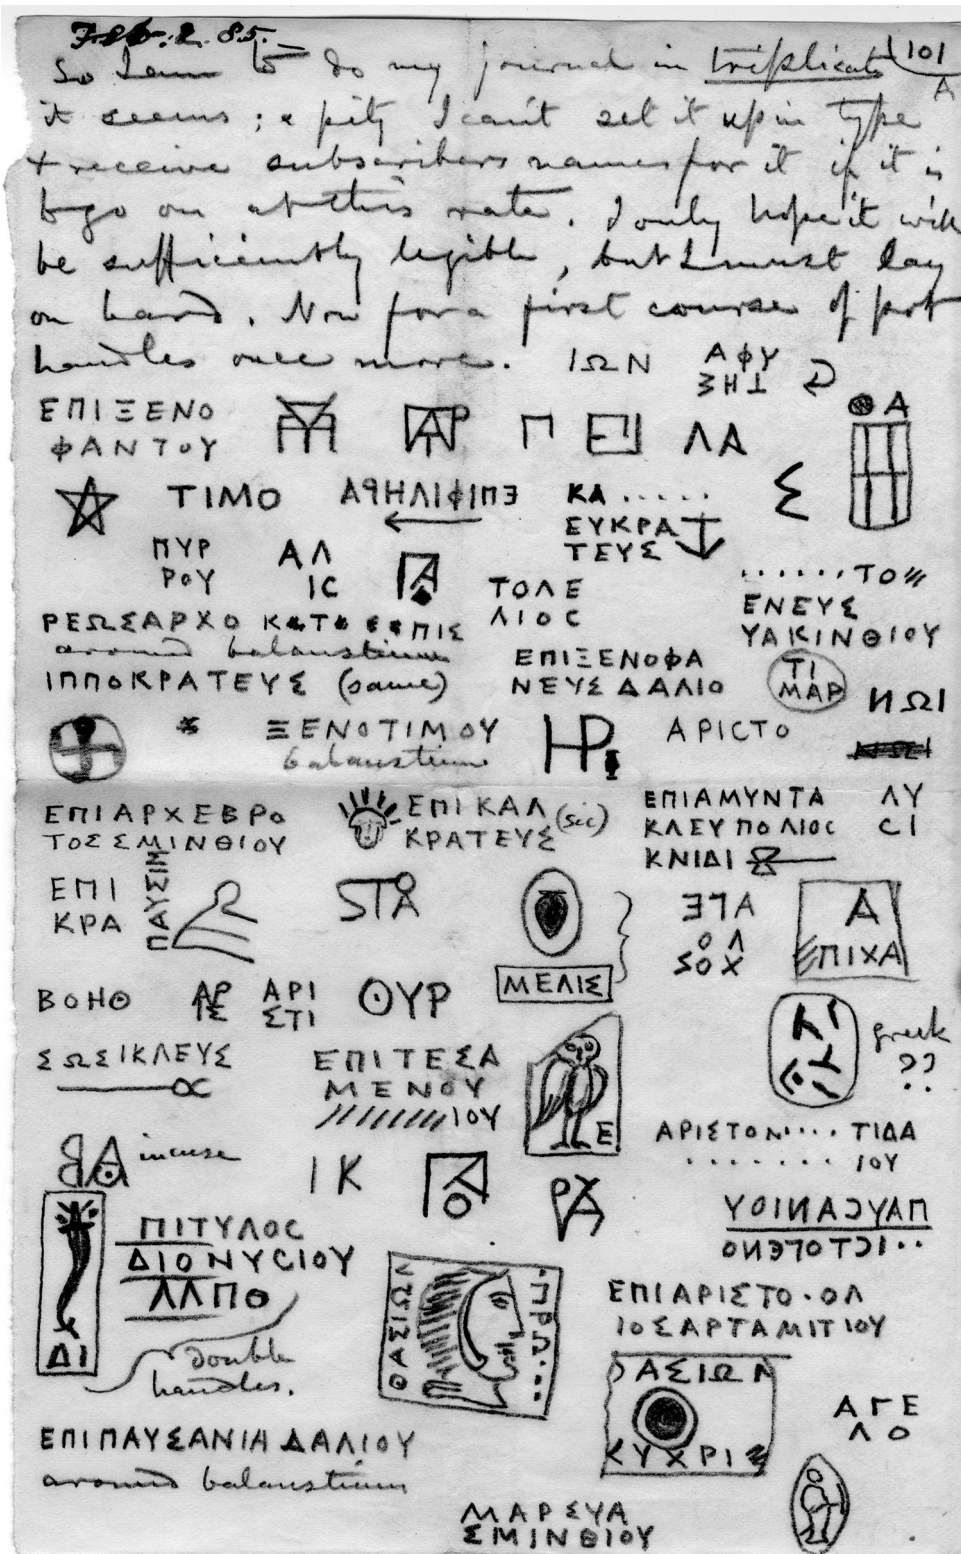 Feb. 2. 85.
101
A
So I am to do my journal in triplicate
it seems; a pity I can't set it up in type
+ receive subscribers names for it if it is
to go on at this rate. I only hope it will
be sufficiently legible, but I must lay
on hard. Now for a first course of pot
handles once more.
ΙΩΝ
ΑΦΥ
ΣΗΤ
ΕΠΙΞΕΝΟ
ΦΑΝΤΟΥ
ΛΑ
Α
ΤΙΜΟ
ΕΠΙΦΙΛΗΡΑ
ΚΑ.....
ΕΥΚΡΑ
ΤΕΥΣ
Σ
ΠΥΡ
ΡΟΥ
ΑΛ
ΙC
ΤΟΛΕ
ΛΙΟC
......ΤΟ
ΕΝΕΥΣ
ΥΑΚΙΝΘΙΟΥ
ΡΕΩΣΑΡΧΟ
ΠΙΣ
around balaustium
ΙΠΠΟΚΡΑΤΕΥΣ (same)
ΕΠΙΞΕΝΟΦΑ
ΝΕΥΣΔΑΛΙΟ
ΤΙ
ΜΑΡ
ΝΩΙ
ΞΕΝΟΤΙΜΟΥ
balaustium
ΑΡΙCΤΟ
ΕΠΙΑΡΧΕΒΡΟ
ΤΟΣΣΜΙΝΘΙΟΥ
ΕΠΙΚΑΛ
ΚΡΑΤΕΥΣ (sic)
ΕΠΙΑΜΥΝΤΑ
ΚΛΕΥΠΟΛΙΟC
ΚΝΙΔΙ
ΛΥ
CΙ
ΕΠΙ
ΚΡΑ
ΠΑΥΣΙΜ
ΣΤΑ
ΜΕΛΙΣ
ΑΓΕ
ΛΟ
ΧΟΣ
Α
ΠΙΧΑ
ΒΟΗΘ
ΑΡΙ
ΣΤΙ
ΘΥΡ
greek
??
ΣΩΣΙΚΛΕΥΣ
ΕΠΙΤΕΣΑ
ΜΕΝΟΥ
ΙΟΥ
Ε
ΑΡΙΣΤΟΝ.... ΤΙΔΑ
....... ΙΟΥ
incuse
ΙΚ
ΠΑΥCΑΝΙΟΥ
..ΙCΤΟΓΕΝΟ
ΔΙ
ΠΙΤΥΛΟC
ΔΙΟΝΥCΙΟΥ
ΛΛΠΘ
double
handles.
ΘΑΣΙΩΝ
ΠΡΩ...
ΕΠΙΑΡΙΣΤΟ.ΟΛ
ΙΟΣΑΡΤΑΜΙΤΙΟΥ
ΑΣΙΩΝ
ΚΥΧΡΙ
ΑΓΕ
ΛΟ
ΕΠΙΠΑΥΣΑΝΙΑ ΔΑΛΙΟΥ
around balaustium
ΜΑΡΣΥΑ
ΣΜΙΝΘΙΟΥ